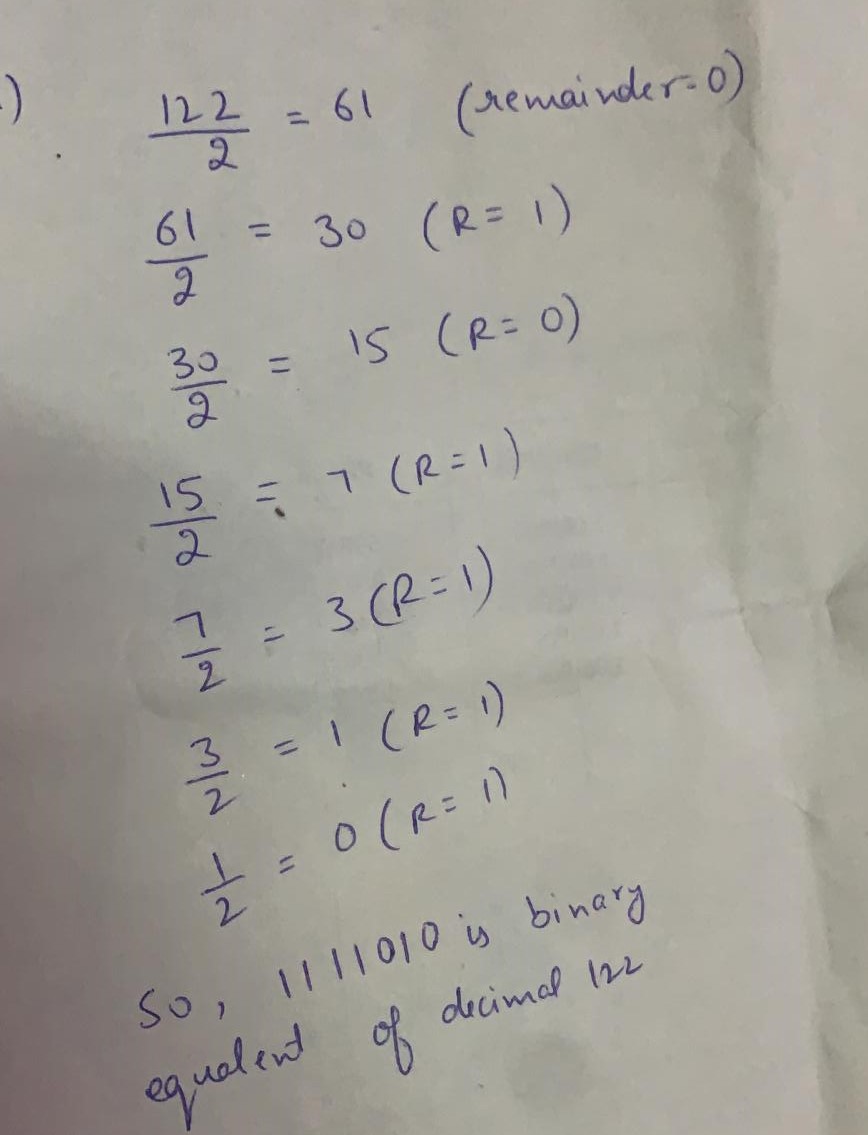 .) 122/2 = 61 (remainder=0)
61/2 = 30 (R= 1)
30/2 = 15 (R= 0)
15/2 = 7 (R=1)
7/2 = 3 (R=1)
3/2 = 1 (R= 1)
1/2 = 0 (R= 1)
So, 1111010 is binary
equalent of decimal 122